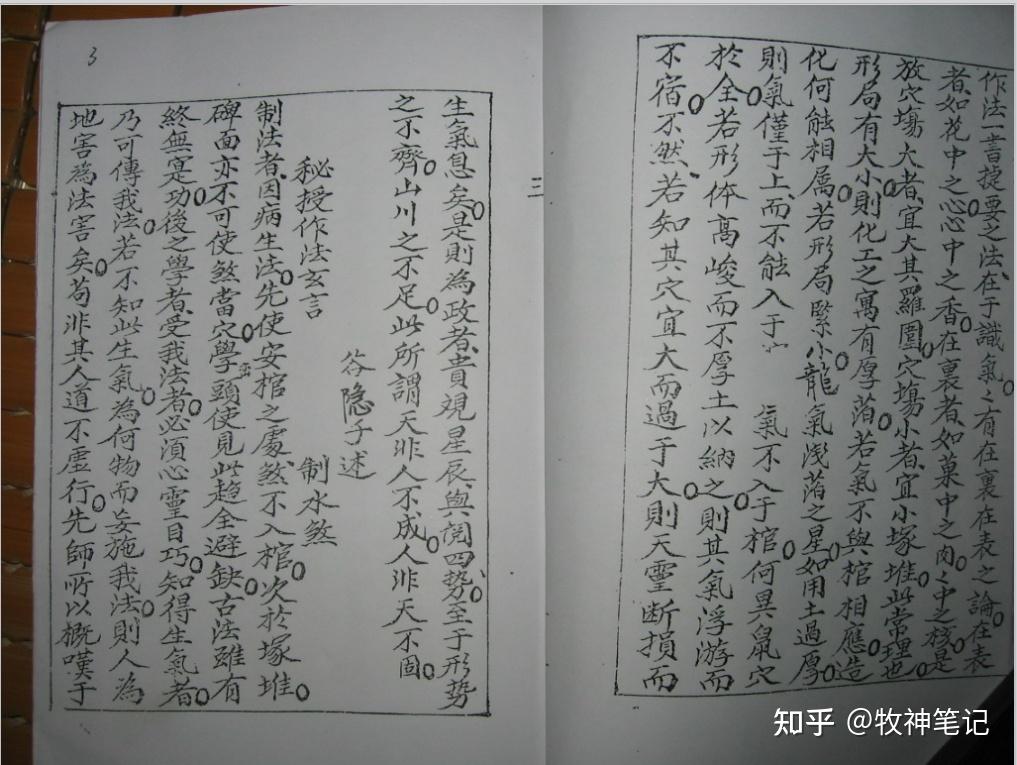 作法一書捷要之法在于識氣々有在裏在表之論在表
者如花中之心心中之香在裏者如菓中之肉々中之核是
放穴塲大者宜大其羅圍穴塲小者宜小塚堆此常理也
形局有大小則化工之寓有厚薄若氣不與棺相應造
化何能相属若形局緊小龍氣浅薄之星如用土過厚
則氣僅于上而不能入于 氣不入于棺何異鼠穴
於全若形体高峻而不厚土以納之則其氣浮游而
不宿不然若知其穴宜大而過于大則天靈断損而
三
生氣息矣是則為政者貴規星辰與閲四勢至于形勢
之不齊山川之不足此所謂天非人不成人非天不固
秘授作法玄言
谷隐子述
制水煞
制法者因病生法先使安棺之處煞不入棺次於塚堆
碑面亦不可使煞當穴學頭使見此趋全避缺古法雖有
終無寔功後之學者受我法者必須心靈目巧知得生氣者
乃可傳我法若不知此生氣為何物而妄施我法則人為
地害為法害矣苟非其人道不虚行先師所以概嘆于
3
知乎 @牧神笔记